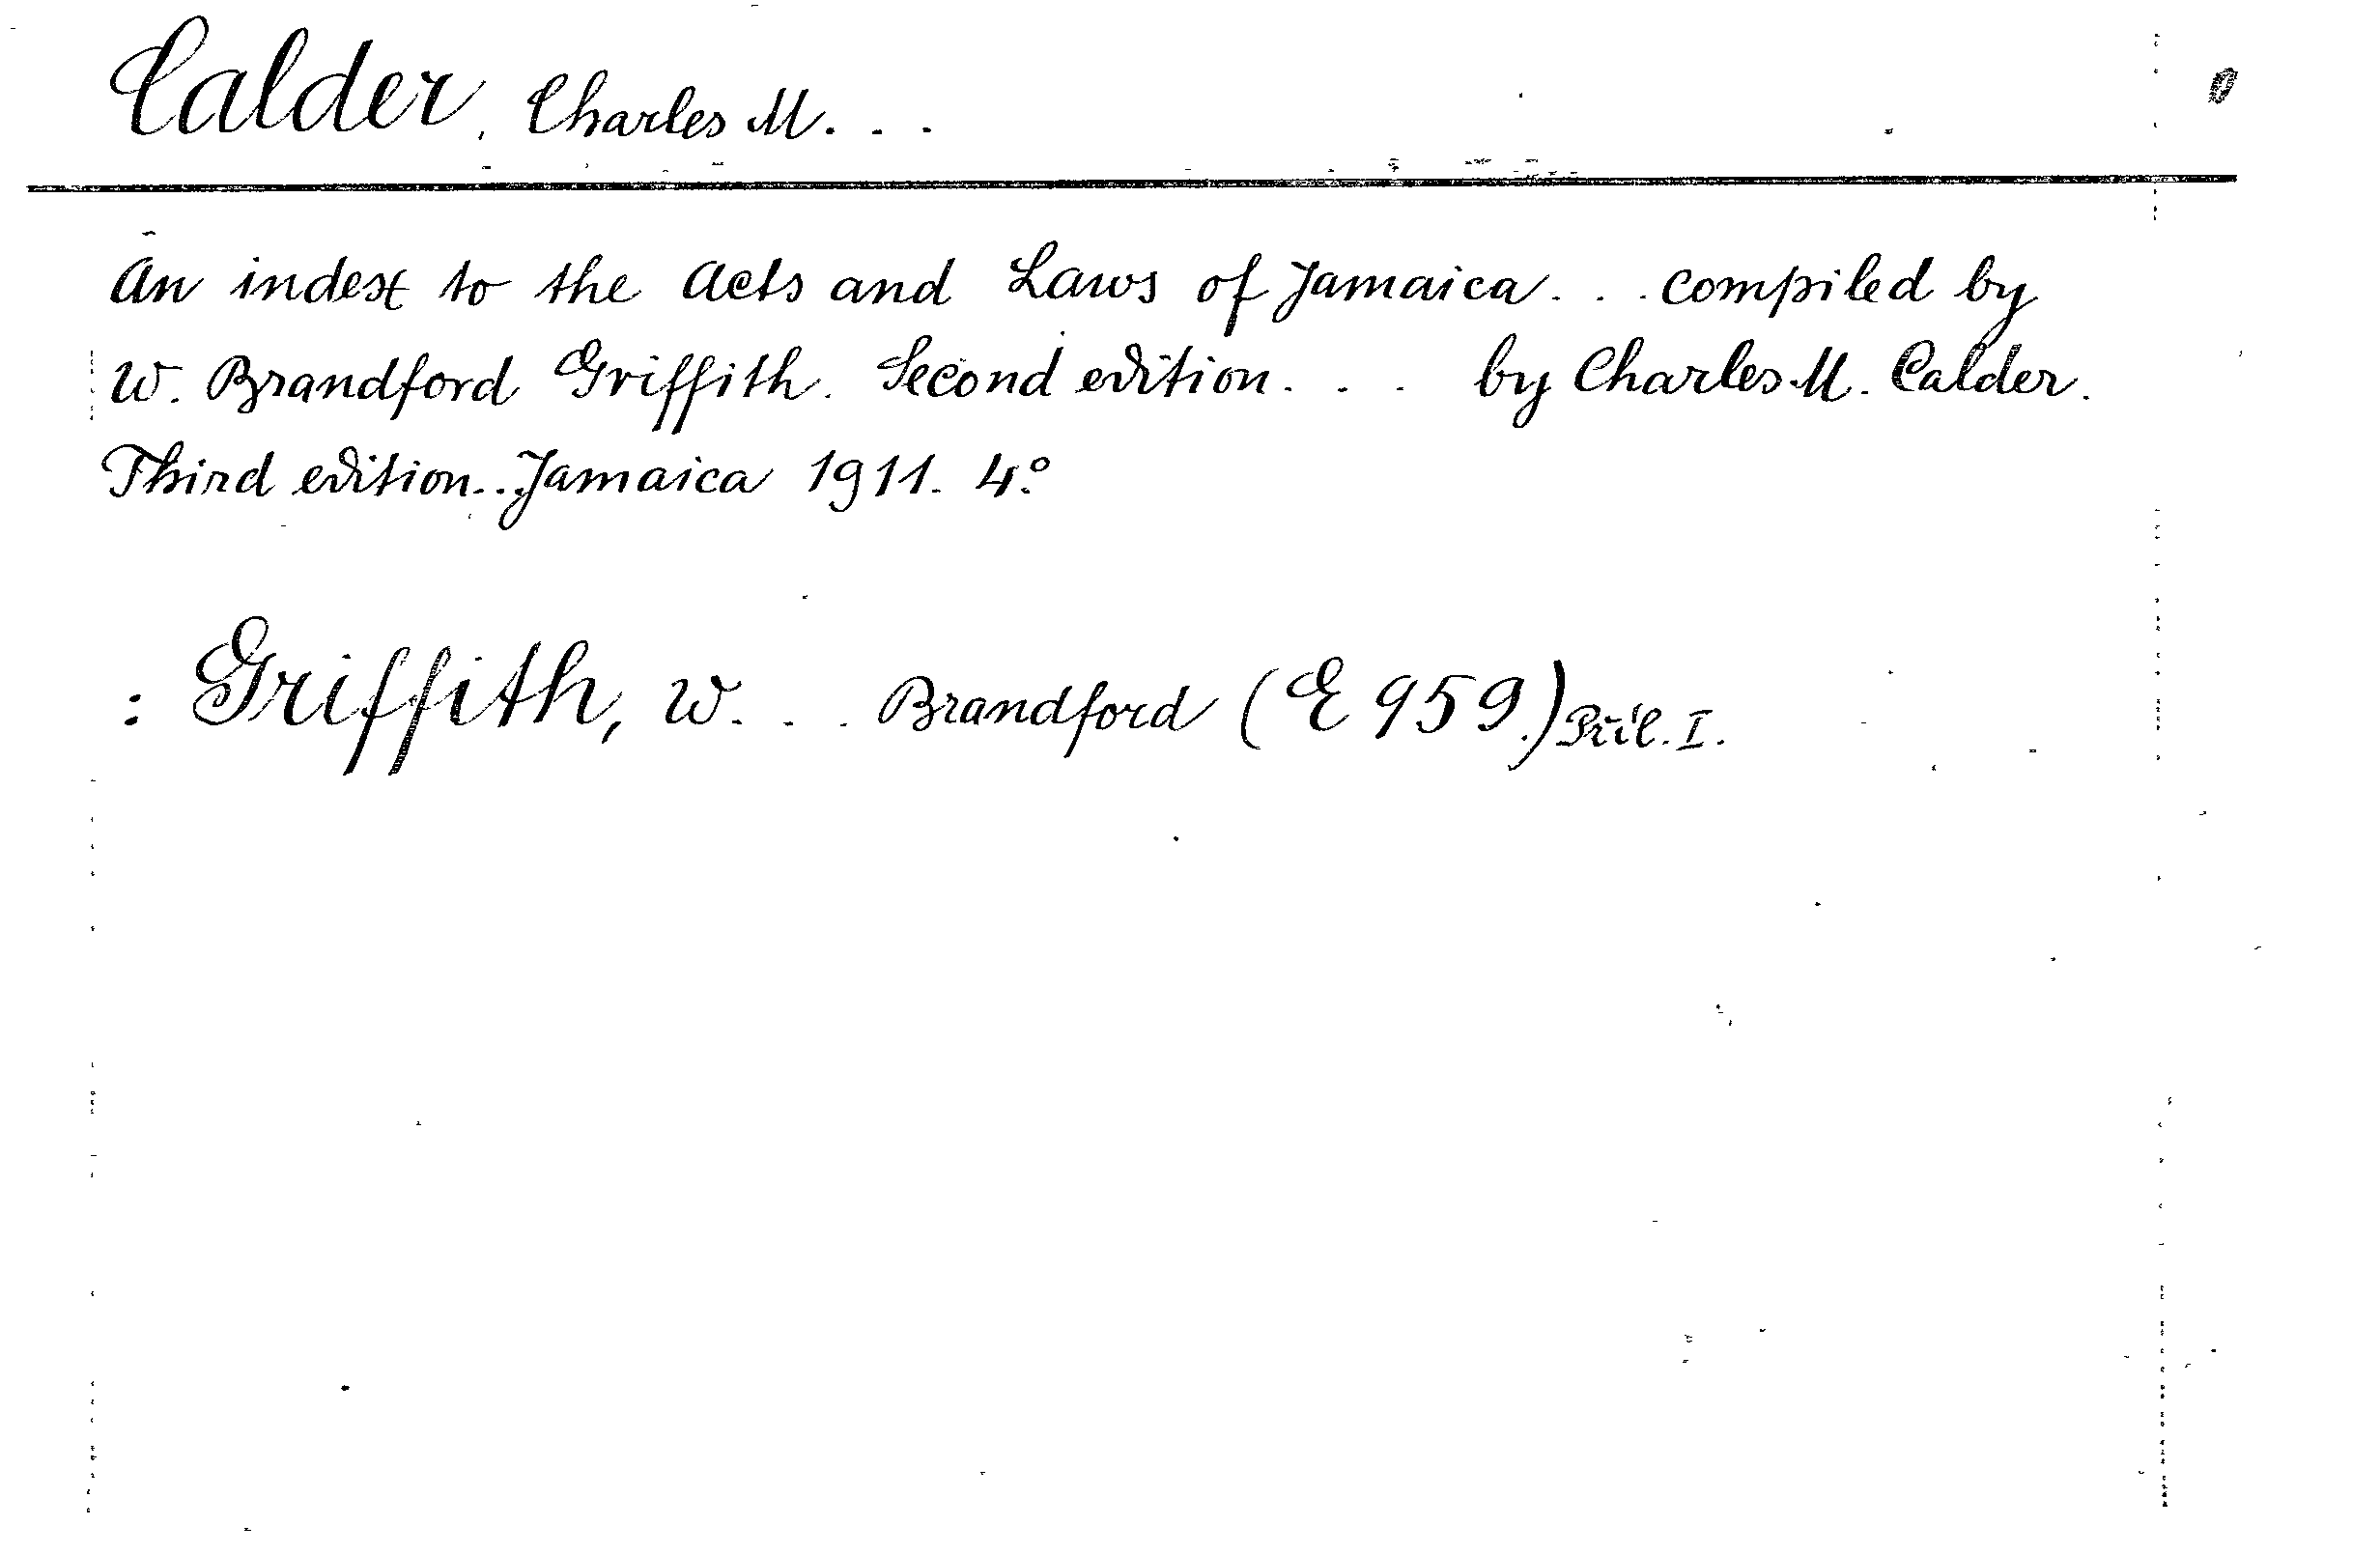 Calder, Charles M. . .
An index to the Acts and Laws of Jamaica. . . compiled by
W. Brandford Griffith. Second edition. . . by Charles M. Calder.
Third edition... Jamaica 1911. 4°
: Griffith, W. . . Brandford (E 959.) Příl. I.